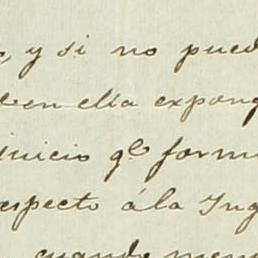 , y si no pued
en ella expong
inicio qe form
especto á la Ing
cuando men